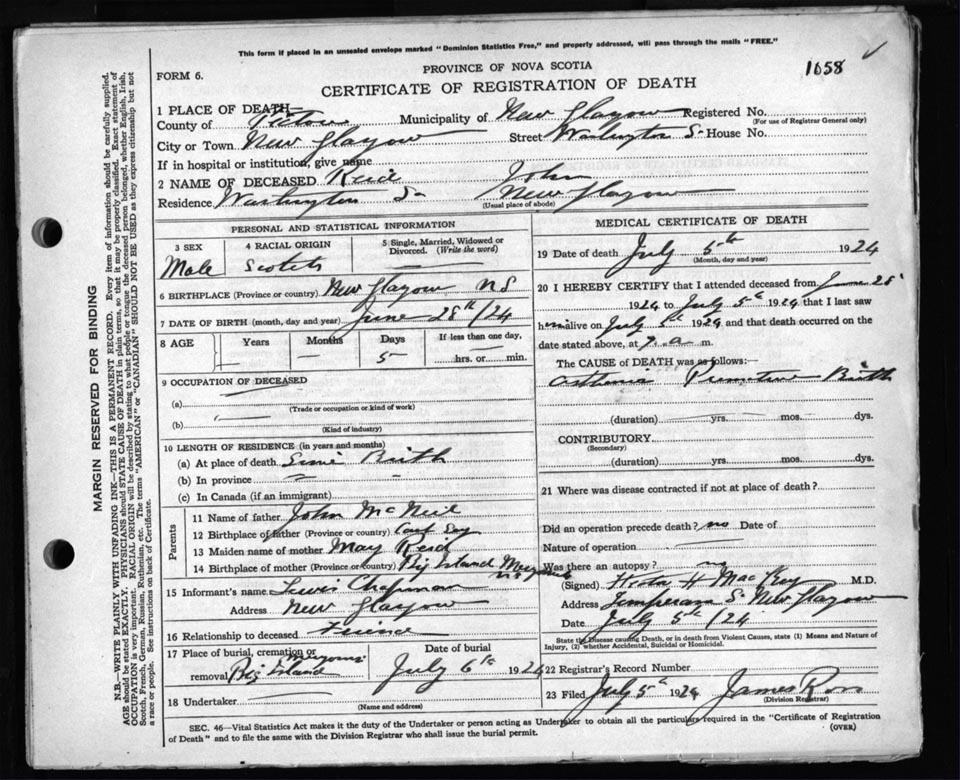 This form if placed in an unsealed envelope marked "Dominion Statistics Free," and properly addressed, will pass through the mails "FREE."
1058
PROVINCE OF NOVA SCOTIA
FORM 6.
CERTIFICATE OF REGISTRATION OF DEATH
1 PLACE OF DEATH—
County of Pictou Municipality of New Glasgow Registered No.
(For use of Registrar General only)
City or Town New Glasgow Street Washington St House No.
If in hospital or institution, give name
2 NAME OF DECEASED Reid John
Residence Washington St New Glasgow
(Usual place of abode)
PERSONAL AND STATISTICAL INFORMATION
3 SEX 4 RACIAL ORIGIN 5 Single, Married, Widowed or Divorced. (Write the word)
Male Scotch —
6 BIRTHPLACE (Province or country) New Glasgow NS
7 DATE OF BIRTH (month, day and year) June 28th/24
8 AGE Years Months Days If less than one day,
— — 5 hrs. or min.
9 OCCUPATION OF DECEASED
(a)
(Trade or occupation or kind of work)
(b)
(Kind of industry)
10 LENGTH OF RESIDENCE (in years and months)
(a) At place of death Birth
(b) In province — —
(c) In Canada (if an immigrant)
Parents
11 Name of father John McNeil
12 Birthplace of father (Province or country)
13 Maiden name of mother May Reid
14 Birthplace of mother (Province or country) Big Island NS
15 Informant's name Lewis Chapman
Address New Glasgow
16 Relationship to deceased Friend
17 Place of burial, cremation or removal Big Island
Date of burial July 6th 1924
18 Undertaker
(Name and address)
MEDICAL CERTIFICATE OF DEATH
19 Date of death July 5th 1924
(Month, day and year)
20 I HEREBY CERTIFY that I attended deceased from June 28
1924 to July 5th 1924 that I last saw
him alive on July 5th 1924 and that death occurred on the
date stated above, at 7 a m.
The CAUSE OF DEATH was as follows:—
Asthenia Premature Birth
(duration) yrs. mos. dys.
CONTRIBUTORY
(Secondary)
(duration) yrs. mos. dys.
21 Where was disease contracted if not at place of death?
Did an operation precede death? no Date of
Nature of operation
Was there an autopsy? no
(Signed) H MacKay M.D.
Address Temperance St New Glasgow
Date July 5th/24
State the Disease causing Death, or in death from Violent Causes, state (1) Means and Nature of
Injury, (2) whether Accidental, Suicidal or Homicidal.
22 Registrar's Record Number
23 Filed July 5th 1924 James Ross
(Division Registrar)
SEC. 46—Vital Statistics Act makes it the duty of the Undertaker or person acting as Undertaker to obtain all the particulars required in the "Certificate of Registration
of Death" and to file the same with the Division Registrar who shall issue the burial permit.
(OVER)
MARGIN RESERVED FOR BINDING
N.B.—WRITE PLAINLY WITH UNFADING INK—THIS IS A PERMANENT RECORD. Every item of information should be carefully supplied.
AGE should be stated EXACTLY. PHYSICIANS should STATE CAUSE OF DEATH in plain terms, so that it may be properly classified. Exact statement of
OCCUPATION is very important. RACIAL ORIGIN will be described by stating to what people or tongue the deceased person belonged, whether English, Irish,
Scotch, French, German, Russian, Ruthenian, etc. The terms "AMERICAN" or "CANADIAN" SHOULD NOT BE USED as they express citizenship but not
a race or people. See instructions on back of Certificate.